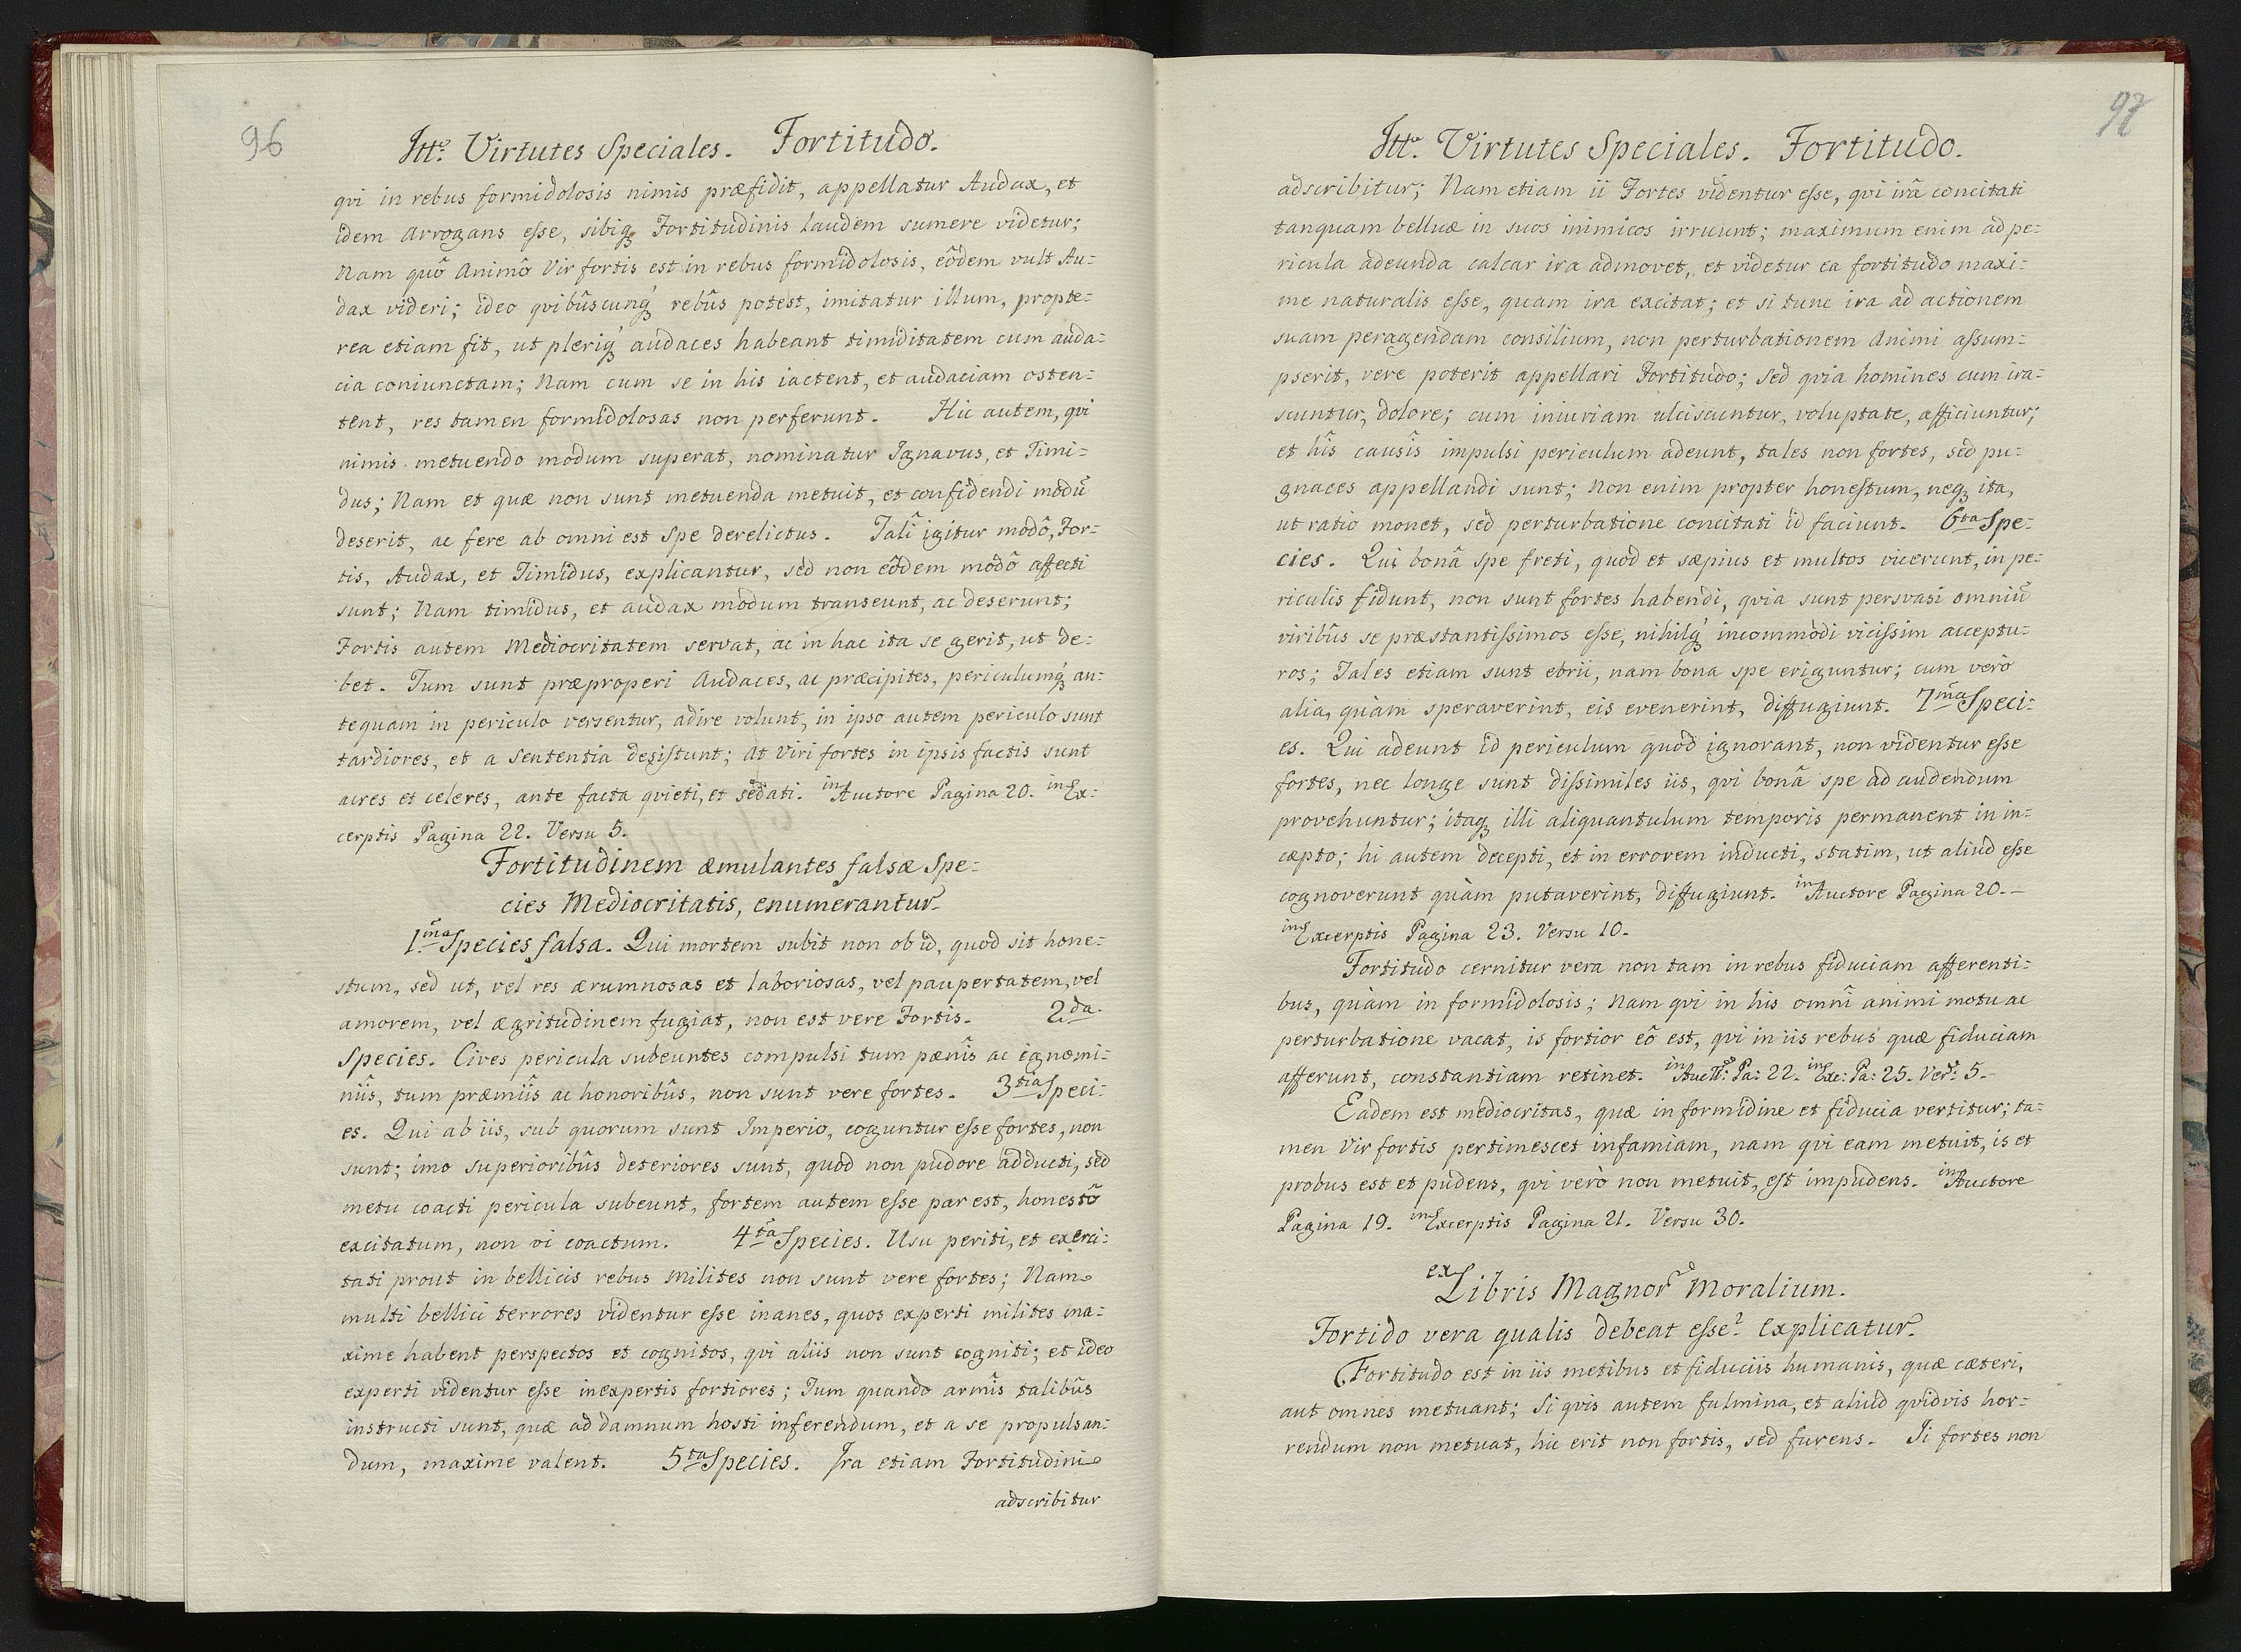 96
Itt.º Virtutes Speciales. Fortitudo.
qvi in rebus formidolosis nimis præfidit, appellatur Audax, et
idem Arrogans esse, sibiq́ Fortitudinis laudem sumere videtur;
Nam quô Animô Vir fortis est in rebus formidolosis, eôdem vult Au=
dax videri; ideo qvibûscunq́ rebûs potest, imitatur illum, propte=
rea etiam fit, ut pleriq́ audaces habeant timiditatem cum auda=
cia coniunctam; Nam cum se in his iactent, et audaciam osten=
tent, res tamen formidolosas non perferunt. Hic autem, qvi
nimis metuendo modum superat, nominatur Ignavus, et Timi=
dus; Nam et quæ non sunt metuenda metuit, et confidendi modū
deserit, ac fere ab omni est Spe derelictus. Talî igitur modô, For=
tis, Audax, et Timidus, explicantur, sed non eôdem modô affecti
sunt; Nam timidus, et audax modum transeunt, ac deserunt;
Fortis autem Mediocritatem servat, ac in hac ita se gerit, ut de=
bet. Tum sunt præproperi Audaces, ac præcipites, periculumq́ an=
tequam in periculo versentur, adire volunt, in ipso autem periculo sunt
tardiores, et a Sententia desistunt; At Viri fortes in ipsis factis sunt
acres et celeres, ante facta qvieti, et sedati. in Auctore Pagina 20. in Ex=
cerptis Pagina 22. Versu 5.
Fortitudinem æmulantes falsæ Spe=
cies Mediocritatis, enumerantur.
1.ma Species falsa. Qui mortem subit non ob id, quod sit hone=
stum, sed ut, vel res ærumnosas et laboriosas, vel paupertatem, vel
amorem, vel ægritudinem fugiat, non est vere Fortis. 2.da
Species. Cives pericula subeuntes compulsi tum pænîs ac ignomi=
niîs, tum præmiîs ac honoribûs, non sunt vere fortes. 3tia Speci=
es. Qui ab iis, sub quorum sunt Imperio, coguntur esse fortes, non
sunt; imo superioribûs deteriores sunt, quod non pudore adducti, sed
metu coacti pericula subeunt, fortem autem esse par est, honestô
excitatum, non vi coactum. 4ta Species. Usu periti, et exerci=
tati prout in bellicis rebus Milites non sunt vere fortes; Nam
multi bellici terrores videntur esse inanes, quos experti milites ma=
xime habent perspectos et cognitos, qvi aliis non sunt cogniti; et ideo
experti videntur esse inexpertis fortiores; Tum quando armîs talibûs
instructi sunt, quæ ad damnum hosti inferendum, et a se propulsan=
dum, maxime valent. 5ta Species. Ira etiam Fortitudini
adscribitur
97
Itt.º Virtutes Speciales. Fortitudo.
adscribitur; Nam etiam ii Fortes videntur esse, qvi irâ concitati
tanquam belluæ in suos inimicos irruunt; maximum enim ad pe=
ricula adeunda calcar ira admovet, et videtur ea fortitudo maxi=
me naturalis esse, quam ira excitat; et si tunc ira ad actionem
suam peragendam consilium, non perturbationem Animi assum=
pserit, vere poterit appellari Fortitudo; sed qvia homines cum ira=
scuntur, dolore; cum iniuriam ulciscuntur, voluptate, afficiuntur;
et hîs causîs impulsi periculum adeunt, tales non fortes, sed pu=
gnaces appellandi sunt; Non enim propter honestum, neq́ ita,
ut ratio monet, sed perturbatione concitati id faciunt. 6ta Spe=
cies. Qui bonâ spe freti, quod et sæpius et multos vicerunt, in pe=
riculis fidunt, non sunt fortes habendi, qvia sunt persvasi omniū
viribûs se præstantissimos esse, nihilq́ incommodi vicissim acceptu=
ros; Tales etiam sunt ebrii, nam bona spe eriguntur; cum verò
alia, quàm speraverint, eis evenerint, diffugiunt. 7ma Speci=
es. Qui adeunt id periculum quod ignorant, non videntur esse
fortes, nec longe sunt dissimiles iis, qvi bonâ spe ad audendum
provehuntur; itaq́ illi aliquantulum temporis permanent in in=
cæpto; hi autem decepti, et in errorem inducti, statim, ut aliud esse
cognoverunt quàm putaverint, diffugiunt. in Auctore Pagina 20.-
in Excerptis Pagina 23. Versu 10.
Fortitudo cernitur vera non tam in rebus fiduciam afferenti=
bus, quàm in formidolosis; Nam qvi in his omnî animi motu ac
perturbatione vacat, is fortior eô est, qvi in iis rebus quæ fiduciam
afferunt, constantiam retinet. in Auctt: Pa: 22. in Exc: Pa: 25. Ver: 5.-
Eadem est mediocritas, quæ in formidine et fiducia vertitur; ta=
men Vir fortis pertimescet infamiam, nam qvi eam metuit, is et
probus est et pudens, qvi verò non metuit, est impudens. in Auctore
Pagina 19. in Excerptis Pagina 21. Versu 30.
ex Libris Magnor Moralium.
Fortido vera qualis debeat esse? Explicatur.
Fortitudo est in iis metibus et fiduciis humanis, quæ cæteri,
aut omnes metuant; Si qvis autem fulmina, et aliud qvidvis hor=
rendum non metuat, hic erit non fortis, sed furens. Ii fortes non